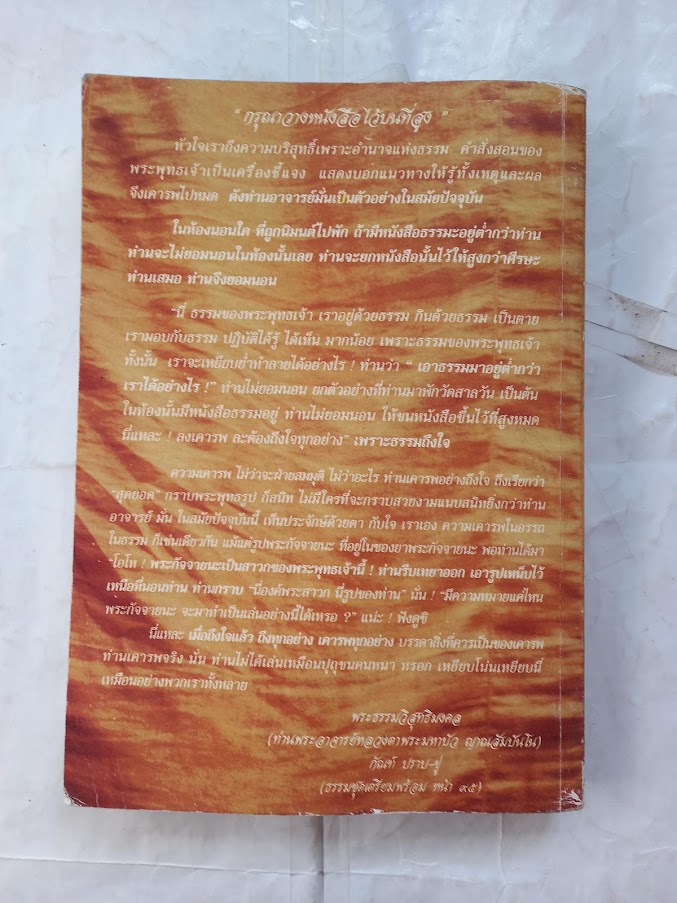 "กรุณาวางหนังสือไว้บนที่สูง"
หัวใจเราถึงความบริสุทธิ์เพราะอำนาจแห่งธรรม คำสั่งสอนของ
พระพุทธเจ้าเป็นเครื่องชี้แจง แสดงบอกแนวทางให้รู้ทั้งเหตุและผล
จึงเคารพไปหมด ดังท่านอาจารย์มั่นเป็นตัวอย่างในสมัยปัจจุบัน
ในห้องนอนใด ที่ถูกนิมนต์ไปพัก ถ้ามีหนังสือธรรมะอยู่ต่ำกว่าท่าน
ท่านจะไม่ยอมนอนในห้องนั้นเลย ท่านจะยกหนังสือนั้นไว้ให้สูงกว่าศีรษะ
ท่านเสมอ ท่านจึงยอมนอน
"นี่ ธรรมของพระพุทธเจ้า เราอยู่ด้วยธรรม กินด้วยธรรม เป็นตาย
เรามอบกับธรรม ปฏิบัติได้รู้ ได้เห็น มากน้อย เพราะธรรมของพระพุทธเจ้า
ทั้งนั้น เราจะเหยียบย่ำทำลายได้อย่างไร ! ท่านว่า " เอาธรรมมาอยู่ต่ำกว่า
เราได้อย่างไร !" ท่านไม่ยอมนอน ยกตัวอย่างที่ท่านมาพักวัดสาลวัน เป็นต้น
ในห้องนั้นมีหนังสือธรรมอยู่ ท่านไม่ยอมนอน ให้ขนหนังสือขึ้นไว้ที่สูงหมด
นี่แหละ ! ลงเคารพ ละต้องถึงใจทุกอย่าง" เพราะธรรมถึงใจ
ความเคารพ ไม่ว่าจะฝ่ายสมมุติ ไม่ว่าอะไร ท่านเคารพอย่างถึงใจ ถึงเรียกว่า
"สุดยอด" กราบพระพุทธรูป ก็สนิท ไม่มีใครที่จะกราบสวยงามแนบสนิทยิ่งกว่าท่าน
อาจารย์ มั่น ในสมัยปัจจุบันนี้ เห็นประจักษ์ด้วยตา กับใจ เราเอง ความเคารพในอรรถ
ในธรรม ก็เช่นเดียวกัน แม้แต่รูปพระกัจจายนะ ที่อยู่ในซองยาพระกัจจายนะ พอท่านได้มา
"โอ้โห ! พระกัจจายนะเป็นสาวกของพระพุทธเจ้านี้ ! ท่านรีบเทยาออก เอารูปเหน็บไว้
เหนือที่นอนท่าน ท่านกราบ "นี่องค์พระสาวก นี่รูปของท่าน" นั่น ! "มีความหมายแค่ไหน
พระกัจจายนะ จะมาทำเป็นเล่นอย่างนี้ได้เหรอ ?" แน่ะ ! ฟังดูซิ
นี่แหละ เมื่อถึงใจแล้ว ถึงทุกอย่าง เคารพทุกอย่าง บรรดาสิ่งที่ควรเป็นของเคารพ
ท่านเคารพจริง นั่น ท่านไม่ได้เล่นเหมือนปุถุชนคนหนา หรอก เหยียบโน่นเหยียบนี่
เหมือนอย่างพวกเราทั้งหลาย
พระธรรมวิสุทธิมงคล
(ท่านพระอาจารย์หลวงตาพระมหาบัว ญาณสัมปันโน)
กัณฑ์ ปราบ-ขู่
(ธรรมชุดเตรียมพร้อม หน้า ๙๕)